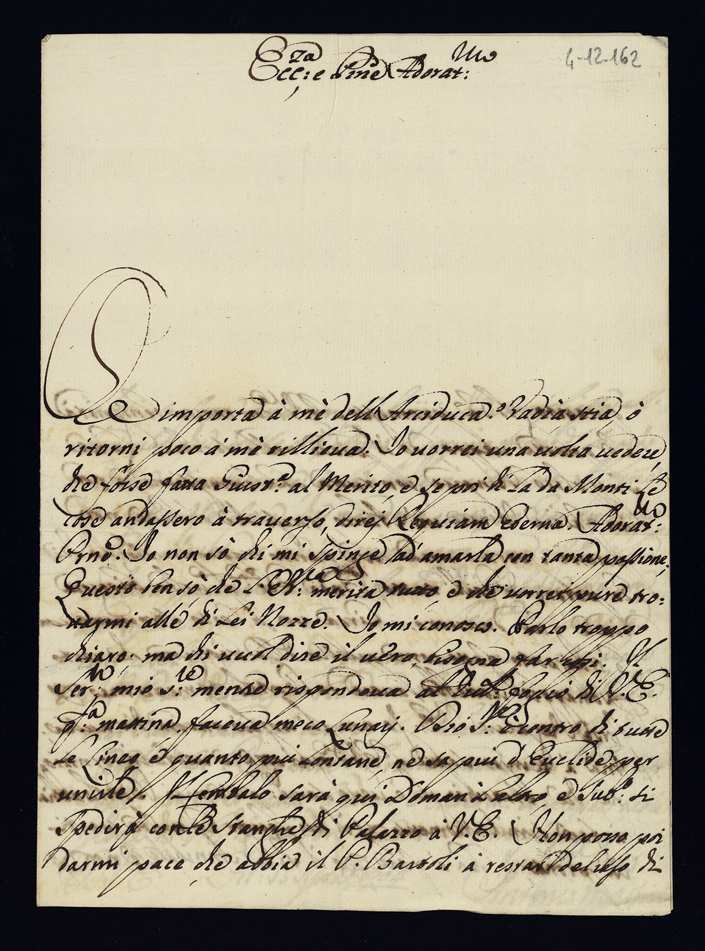 Ecc:za e Pnē Adorat:mo
4-12-162
Che importa à mè dell'Arciduca? Vadia stia, ò
ritorni poco à mè rillieva. Io vorrei una volta vedere,
che fosse fatta al Merito, e se poi di La da Monti le
cose andassero à traverso, direi Requiam eterna. Adorat:mo
Prnē. Io non sò chi mi spinse ad amarla con tanta passione,
Questo ben sò che L'E: V:ra merita tutto, e che vorrei pure tro:
varmi alle di Lei Nozze. Io mi conosco. Parlo troppo
chiaro, ma chi vuol dire il vero, bisogna far così. Il
Ser:mo mio S:re mentre rispondeva al foglio di V. E.
q:ta mattina faceva meco Lunarj. S:re è centro di tutte
le Linee e quanto più Lontane ne sa più d'Euclide per
unirle. Il Cembalo sarà qui Domani L'altro e Sub:o si
spedirà con le Stanghe di Palazzo à V. E. Non posso poi
darmi pace che abbia il P. Bartoli à restar deluso di